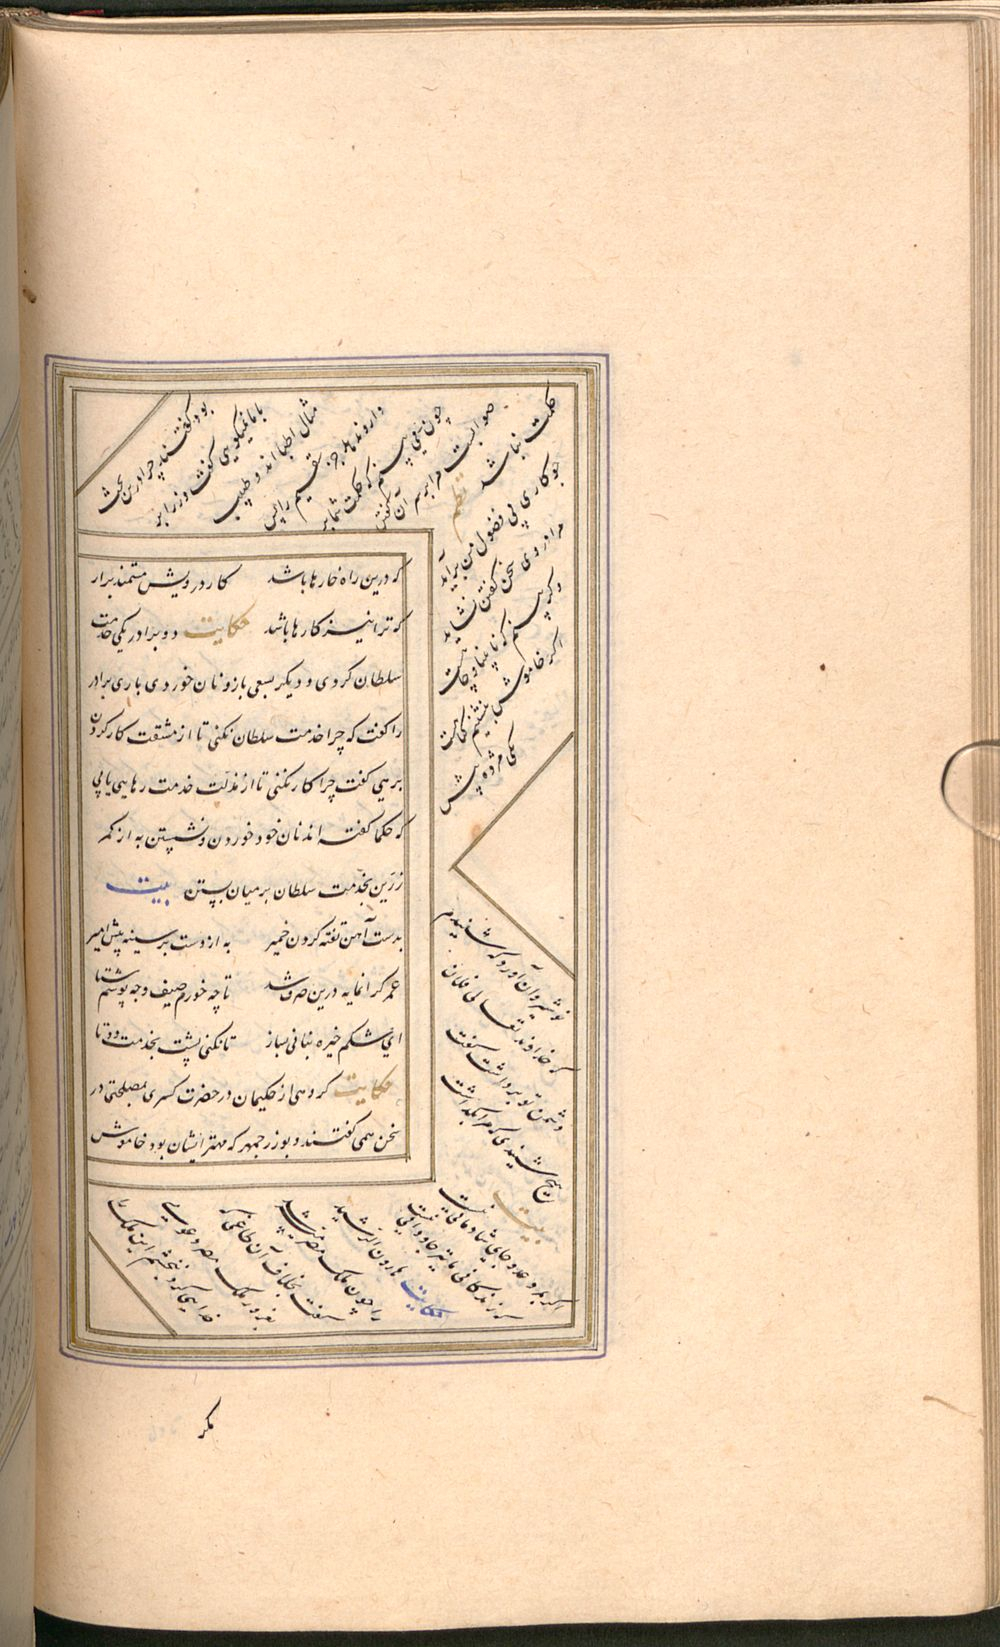 که درین راه خارها باشد کار درویش مستمند برار
که ترا نیز کارها باشد حکایت دو برادر یکی خدمت
سلطان کردی و دیگر بسعی بازو نان خوردی باری برادر
را گفت که چرا خدمت سلطان نکنی تا از مشقت کار کردن
برهی گفت چرا کار نکنی تا از مذلت خدمت رهایی یابی
که حکما گفته اند نان خود خوردن و نشستن به از کمر
زرین بخدمت سلطان بر میان بستن بیت
بدست آهن تفته کردن خمیر به از دست بر سینه پیش امیر
عمر گرانمایه درین صرف شد تا چه خورم صیف و چه پوشم شتا
ای شکم خیره بنانی بساز تا نکنی پشت بخدمت دوتا
حکایت گروهی از حکیمان در حضرت کسری بمصلحتی در
سخن همی گفتند و بوزرجمهر که مهتر ایشان بود خاموش
بود گفتند چرا درین بحث
با ما نمیگویی گفت وزرا بر
مثال اطبا اند و طبیب
دارو ندهد جز سقیم را پس
چون بینم که حکمت شما بر
صوابست مرا بر سر آن گفتن
حکمت نباشد نظم
چو کاری بی فضول من برآید
مرا در وی سخن گفتن نشاید
وگر بینم که نابینا و چاهست
اگر خاموش بنشینم گناهست
یکی مژده پیش
نوشیروان آورد که شنیدم
که خداوند تعالی فلان
دشمن تو برداشت گفت
هیچ شنیدی که مرا بگذاشت
بیت
اگر بمرد عدو جای شادمانی نیست
که زندگانی ما نیز جاودانی نیست
حکایت هارون الرشید
را چون ملک مصر مسلم شد
گفت بخلاف آن طاغی که
بغرور ملک مصر دعوی
خدایی کرد نبخشم این ملک
مگر